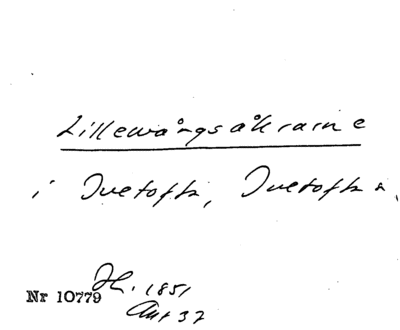 Lillewångsåkrarne
i Ivetofta, Ivetofta s.
Nr 10779 H. 1851
Akt 37